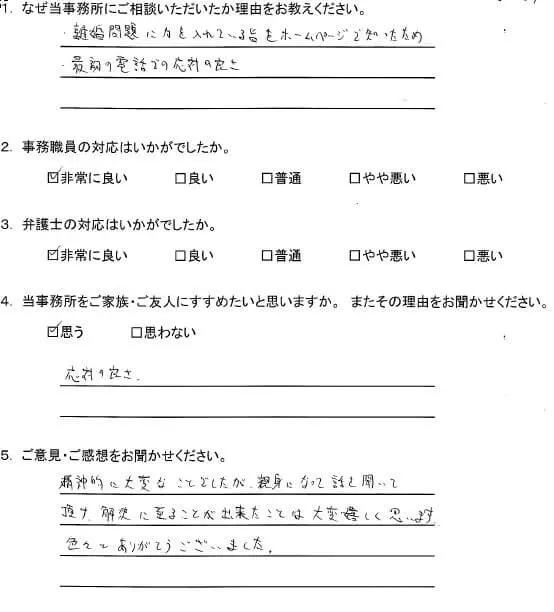 1. なぜ当事務所にご相談いただいたか理由をお教えください。
・離婚問題に力を入れている旨をホームページで知ったため
・最初の電話での応対の良さ
2. 事務職員の対応はいかがでしたか。
☑非常に良い □良い □普通 □やや悪い □悪い
3. 弁護士の対応はいかがでしたか。
☑非常に良い □良い □普通 □やや悪い □悪い
4. 当事務所をご家族・ご友人にすすめたいと思いますか。 またその理由をお聞かせください。
☑思う □思わない
応対の良さ.
5. ご意見・ご感想をお聞かせください。
精神的に大変なことでしたが、親身になって話を聞いて
頂き、解決に至ることが出来たことは大変嬉しく思います
色々とありがとうございました。